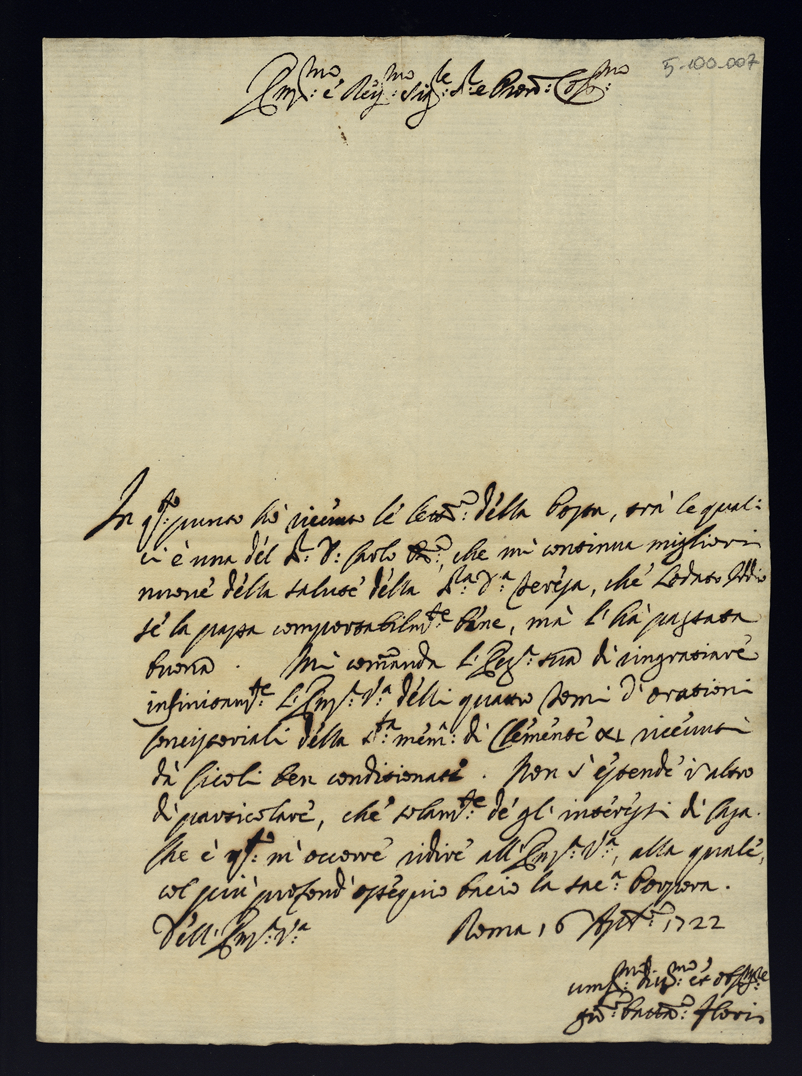 5-100-007
Em:mo e Rev:mo Sig:re S:re e Pron: Col:mo
In q:to punto hò ricevuto le lett:e della Posta, trà le quali
ci è una del S:r D: Carlo, che mi continua migliori
nuove della salute della S:ra D:a Teresa, che Lodato Iddio
se la passa comportabilm:te bene, mà l'hà passata
buona. Mi comanda L'Ecc:a sua di ringratiare
infinitam:te L'Em:a V:a delli quattro Tomi d'orationi
Concistoriali della S:ta mem: di Clemente XI ricevuti
dà Ciccoli ben conditionati. Non s'estende in altro
di particolare, che solam:te de gl'interessi di Casa.
Che è q:to m'occorre ridire all'Em:a V:a, alla quale,
col più profond'ossequio bacio la sac:a Porpora.
Dell'Em:a V:a Roma, 16 1722
um:mo div:mo et oblig:
Gio: Batta: Floris